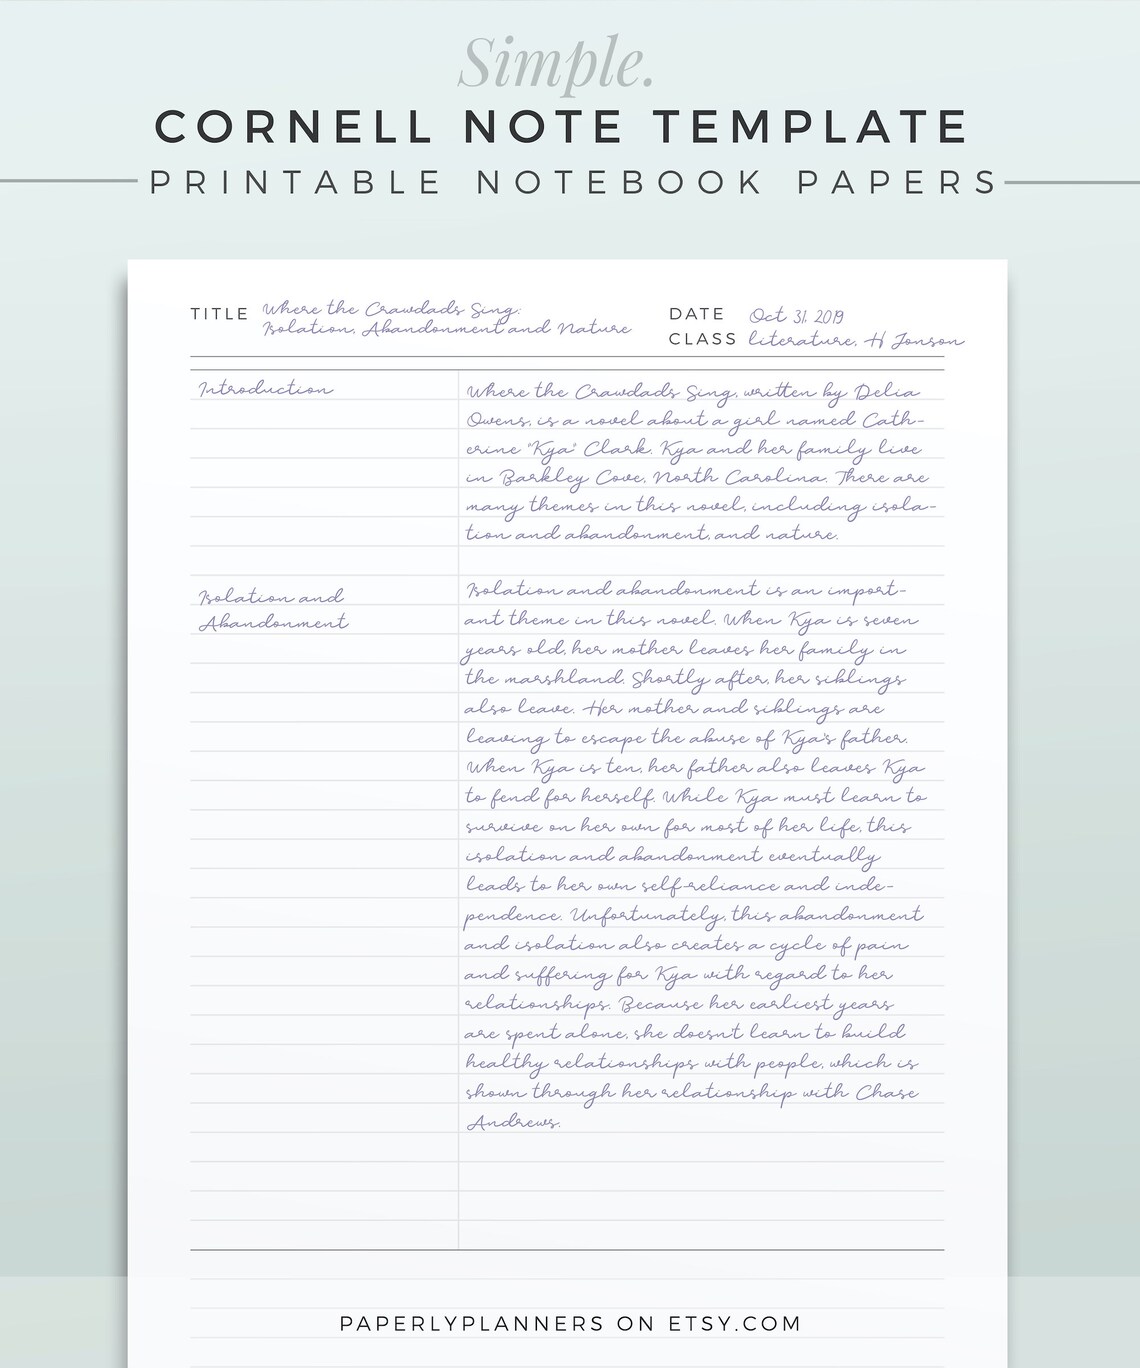 Simple.
CORNELL NOTE TEMPLATE
PRINTABLE NOTEBOOK PAPERS
TITLE Where the Crawdads Sing:
Isolation, Abandonment and Nature
DATE Oct 31, 2019
CLASS literature, H Jonson
Introduction
Where the Crawdads Sing, written by Delia
Owens, is a novel about a girl named Cath-
erine "Kya" Clark. Kya and her family live
in Barkley Cove, North Carolina. There are
many themes in this novel, including isola-
tion and abandonment, and nature.
Isolation and
Abandonment
Isolation and abandonment is an import-
ant theme in this novel. When Kya is seven
years old, her mother leaves her family in
the marshland. Shortly after, her siblings
also leave. Her mother and siblings are
leaving to escape the abuse of Kya's father.
When Kya is ten, her father also leaves Kya
to fend for herself. While Kya must learn to
survive on her own for most of her life, this
isolation and abandonment eventually
leads to her own self-reliance and inde-
pendence. Unfortunately, this abandonment
and isolation also creates a cycle of pain
and suffering for Kya with regard to her
relationships. Because her earliest years
are spent alone, she doesn't learn to build
healthy relationships with people, which is
shown through her relationship with Chase
Andrews.
PAPERLYPLANNERS ON ETSY.COM